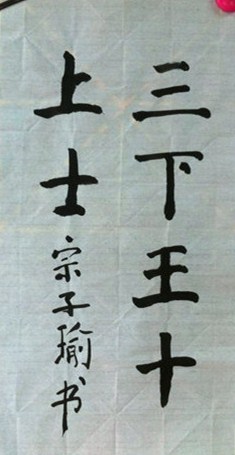 三下王十
上士宗子瑜书